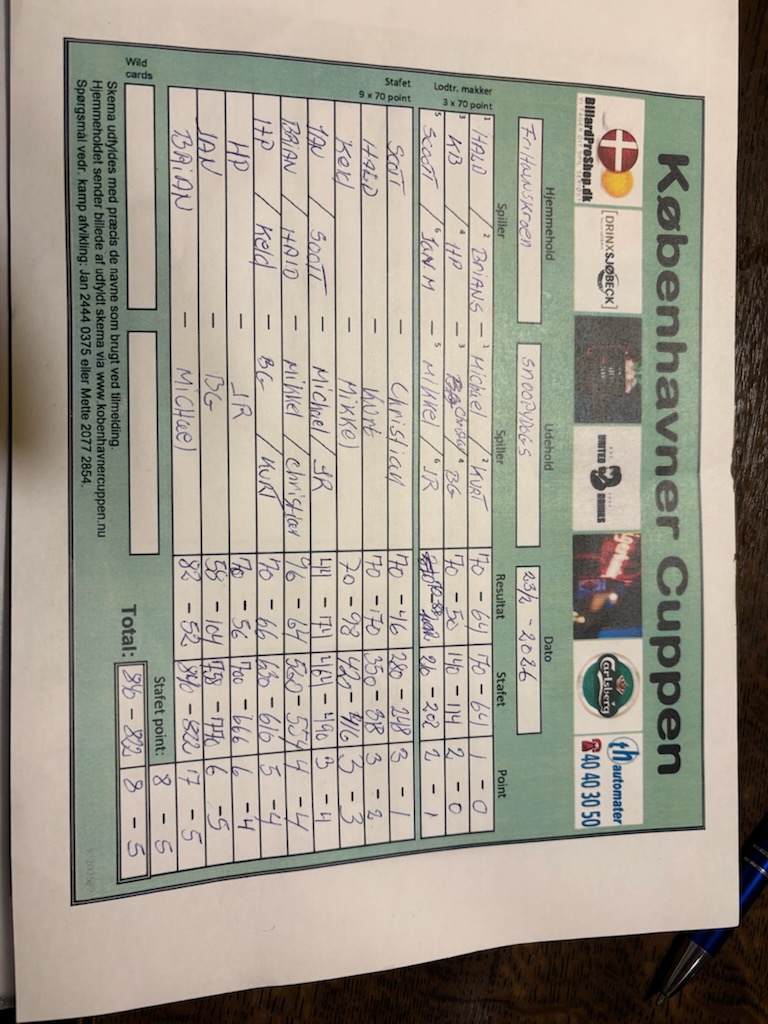 Københavner Cuppen
BillardProShop.dk
[DRINXSJØBECK]
UNITED DRINKS
Carlsberg
th automater
☎ 40 40 30 50
Hjemmehold Udehold Dato
FriHavnskroen SNOOPYDOGS 23/2 - 2026
Lodtr. makker
3 x 70 point
Spiller Spiller Resultat Stafet Point
1 HALD / 2 BRIANS - 1 Michael / 2 KURT 70 - 64 70 - 64 1 - 0
3 KD / 4 HP - 3 / 4 BG 70 - 50 140 - 114 2 - 0
5 SCOTT / 6 JAN M - 5 MIKKEL / 6 JR - 202 2 - 1
Stafet
9 x 70 point
SCOTT - Christian 70 - 46 280 - 248 3 - 1
HALD - Kurt 70 - 350 - 318 3 - 2
- MIKKEL 70 - 98 3 - 3
JAN / SCOTT - Michael / JR 44 - 464 - 490 3 - 4
BRIAN / HALD - Mikkel / Christian 96 - 64 4 - 4
HP / Keld - BG / KURT 70 - 66 630 - 616 5 - 4
HP - JR 70 - 56 700 - 666 6 - 4
JAN - BG 58 - 104 6 - 5
BRIAN - MICHael 82 - 52 840 - 822 17 - 5
Stafet point: 8 - 5
Wild cards
Total: 822 8 - 5
Skema udfyldes med præcis de navne som brugt ved tilmelding.
Hjemmeholdet sender billede af udfyldt skema via www.kobenhavnercuppen.nu
Spørgsmål vedr. kamp afvikling: Jan 2444 0375 eller Mette 2077 2854.